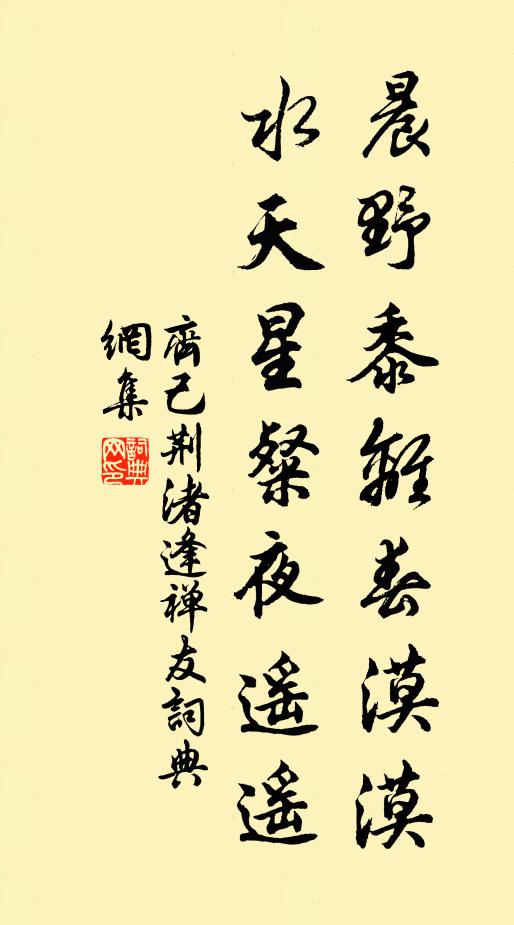 晨野黍離春漠漠
水天星粲夜遥遥
齊己荆渚逢禅友詞典
網集
詞典
网印